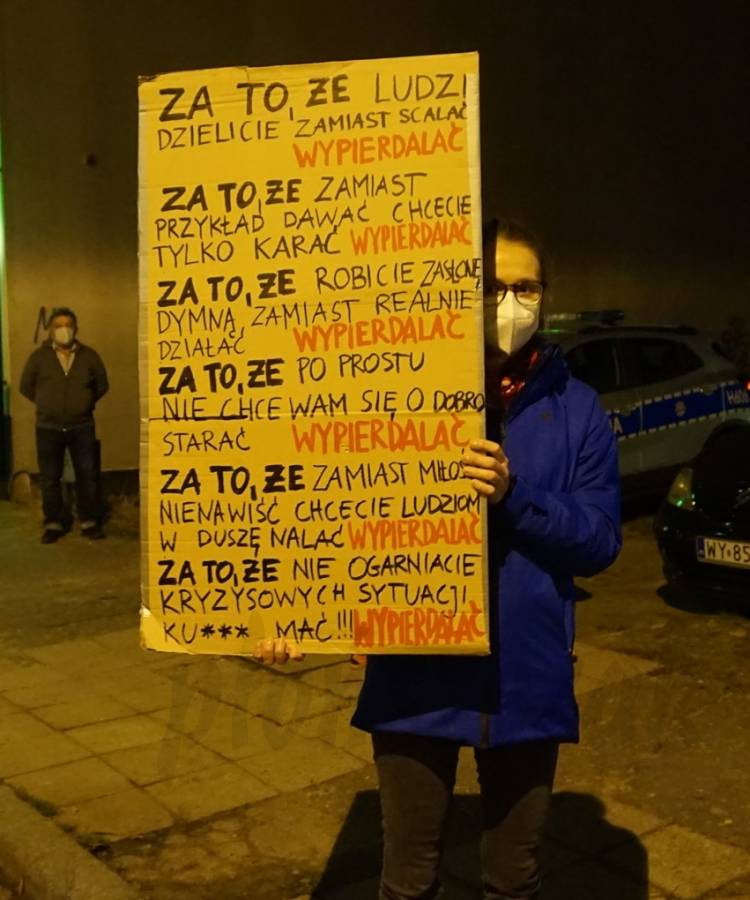 ZA TO, ŻE LUDZI
DZIELICIE ZAMIAST SCALAĆ
WYPIERDALAĆ
ZA TO, ŻE ZAMIAST
PRZYKŁAD DAWAĆ CHCECIE
TYLKO KARAĆ WYPIERDALAĆ
ZA TO, ŻE ROBICIE ZASŁONĘ
DYMNĄ, ZAMIAST REALNIE
DZIAŁAĆ WYPIERDALAĆ
ZA TO, ŻE PO PROSTU
NIE CHCE WAM SIĘ O DOBRO
STARAĆ WYPIERDALAĆ
ZA TO, ŻE ZAMIAST
NIENAWIŚĆ CHCECIE LUDZIOM
W DUSZĘ NALAĆ WYPIERDALAĆ
ZA TO, ŻE NIE OGARNIACIE
KRYZYSOWYCH SYTUACJI
KU*** MAĆ!!! WYPIERDALAĆ
WY 85